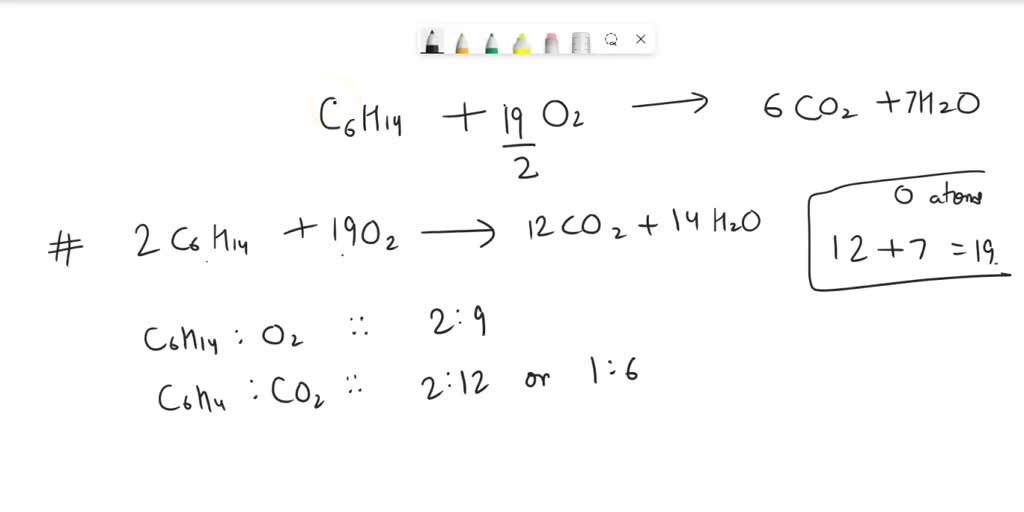 C₆H₁₄ + 19/2 O₂ ⟶ 6CO₂ + 7H₂O
O atoms
12 + 7 = 19.
# 2C₆H₁₄ + 19O₂ ⟶ 12CO₂ + 14H₂O
C₆H₁₄ : O₂ :: 2:9
C₆H₄ : CO₂ :: 2:12 or 1:6